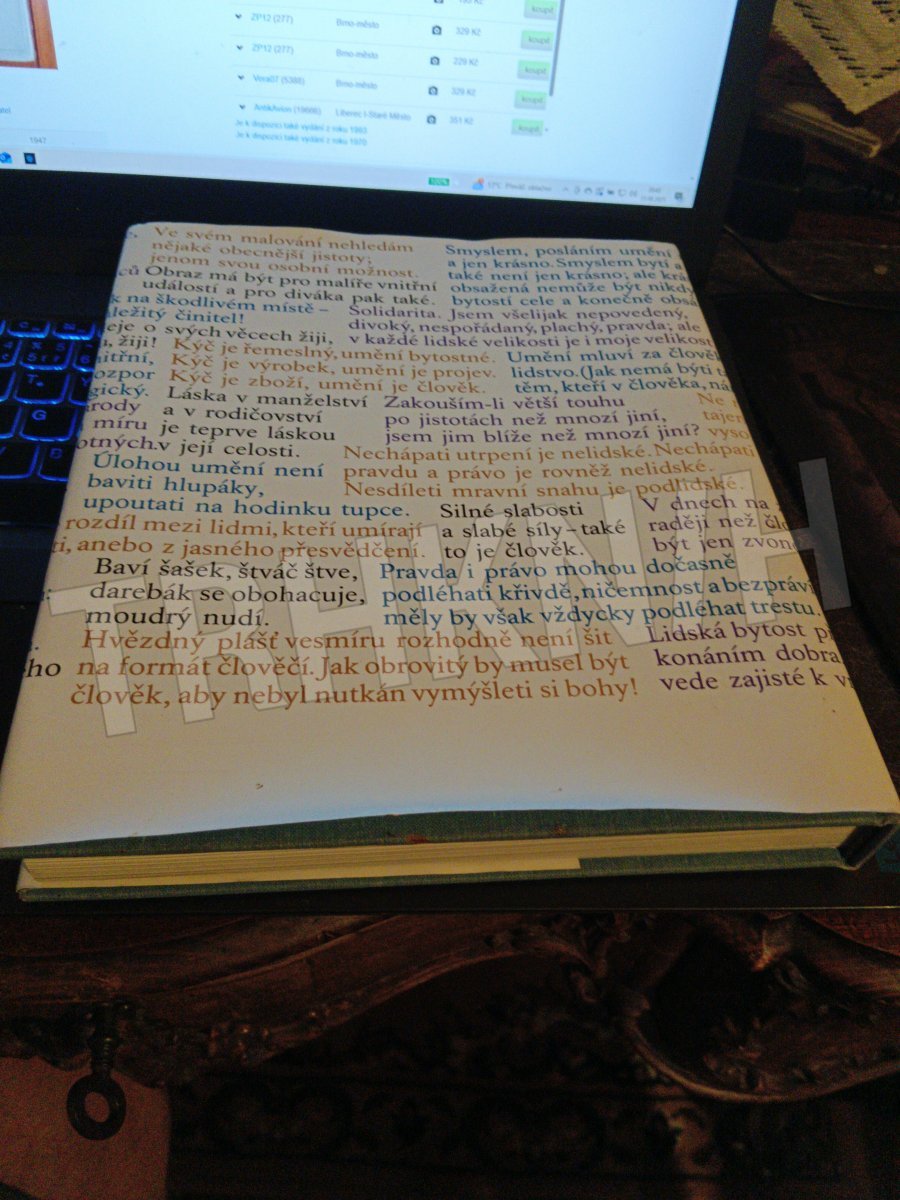 ZP12 (277) Brno-město 329 Kč koupit
ZP12 (277) Brno-město 229 Kč koupit
Vera07 (5388) Brno-město 329 Kč koupit
AntikAvion (19688) Liberec I-Staré Město 351 Kč koupit
Je k dispozici také vydání z roku 1993
Je k dispozici také vydání z roku 1970
1947
100%
17°C
Ve svém malování nehledám
nějaké obecnější jistoty;
jenom svou osobní možnost.
Smyslem, posláním umění
a jen krásno. Smyslem bytí a
také není jen krásno; ale krá
obsažená nemůže být nikdy
bytostí cele a konečně obsá
ců Obraz má být pro malíře vnitřní
událostí a pro diváka pak také.
k na škodlivém místě –
ležitý činitel!
Solidarita. Jsem všelijak nepovedený,
divoký, nespořádaný, plachý, pravda; ale
v každé lidské velikosti je i moje velikost
eje o svých věcech žiji,
, žiji!
Kýč je řemeslný, umění bytostné.
Kýč je výrobek, umění je projev.
Kýč je zboží, umění je člověk.
Umění mluví za člověk
lidstvo. (Jak nemá býti t
těm, kteří v člověka, ná
nitřní,
ozpor
gický.
Láska v manželství
a v rodičovství
je teprve láskou
v její celosti.
Zakouším-li větší touhu
po jistotách než mnozí jiní,
jsem jim blíže než mnozí jiní?
Ne
tajer
vyso
árody
míru
otných.
Nechápati utrpení je nelidské. Nechápati
pravdu a právo je rovněž nelidské.
Nesdíleti mravní snahu je podlidské.
Úlohou umění není
baviti hlupáky,
upoutati na hodinku tupce.
Silné slabosti
a slabé síly – také
to je člověk.
V dnech na
raději než člo
být jen zvono
rozdíl mezi lidmi, kteří umírají
ti, anebo z jasného přesvědčení.
Baví šašek, štváč štve,
darebák se obohacuje,
moudrý nudí.
Pravda i právo mohou dočasně
podléhati křivdě, ničemnost a bezpráví
měly by však vždycky podléhat trestu.
ho
Hvězdný plášť vesmíru rozhodně není šit
na formát člověčí. Jak obrovitý by musel být
člověk, aby nebyl nutkán vymýšleti si bohy!
Lidská bytost p
konáním dobra
vede zajisté k v
TRHKNIH